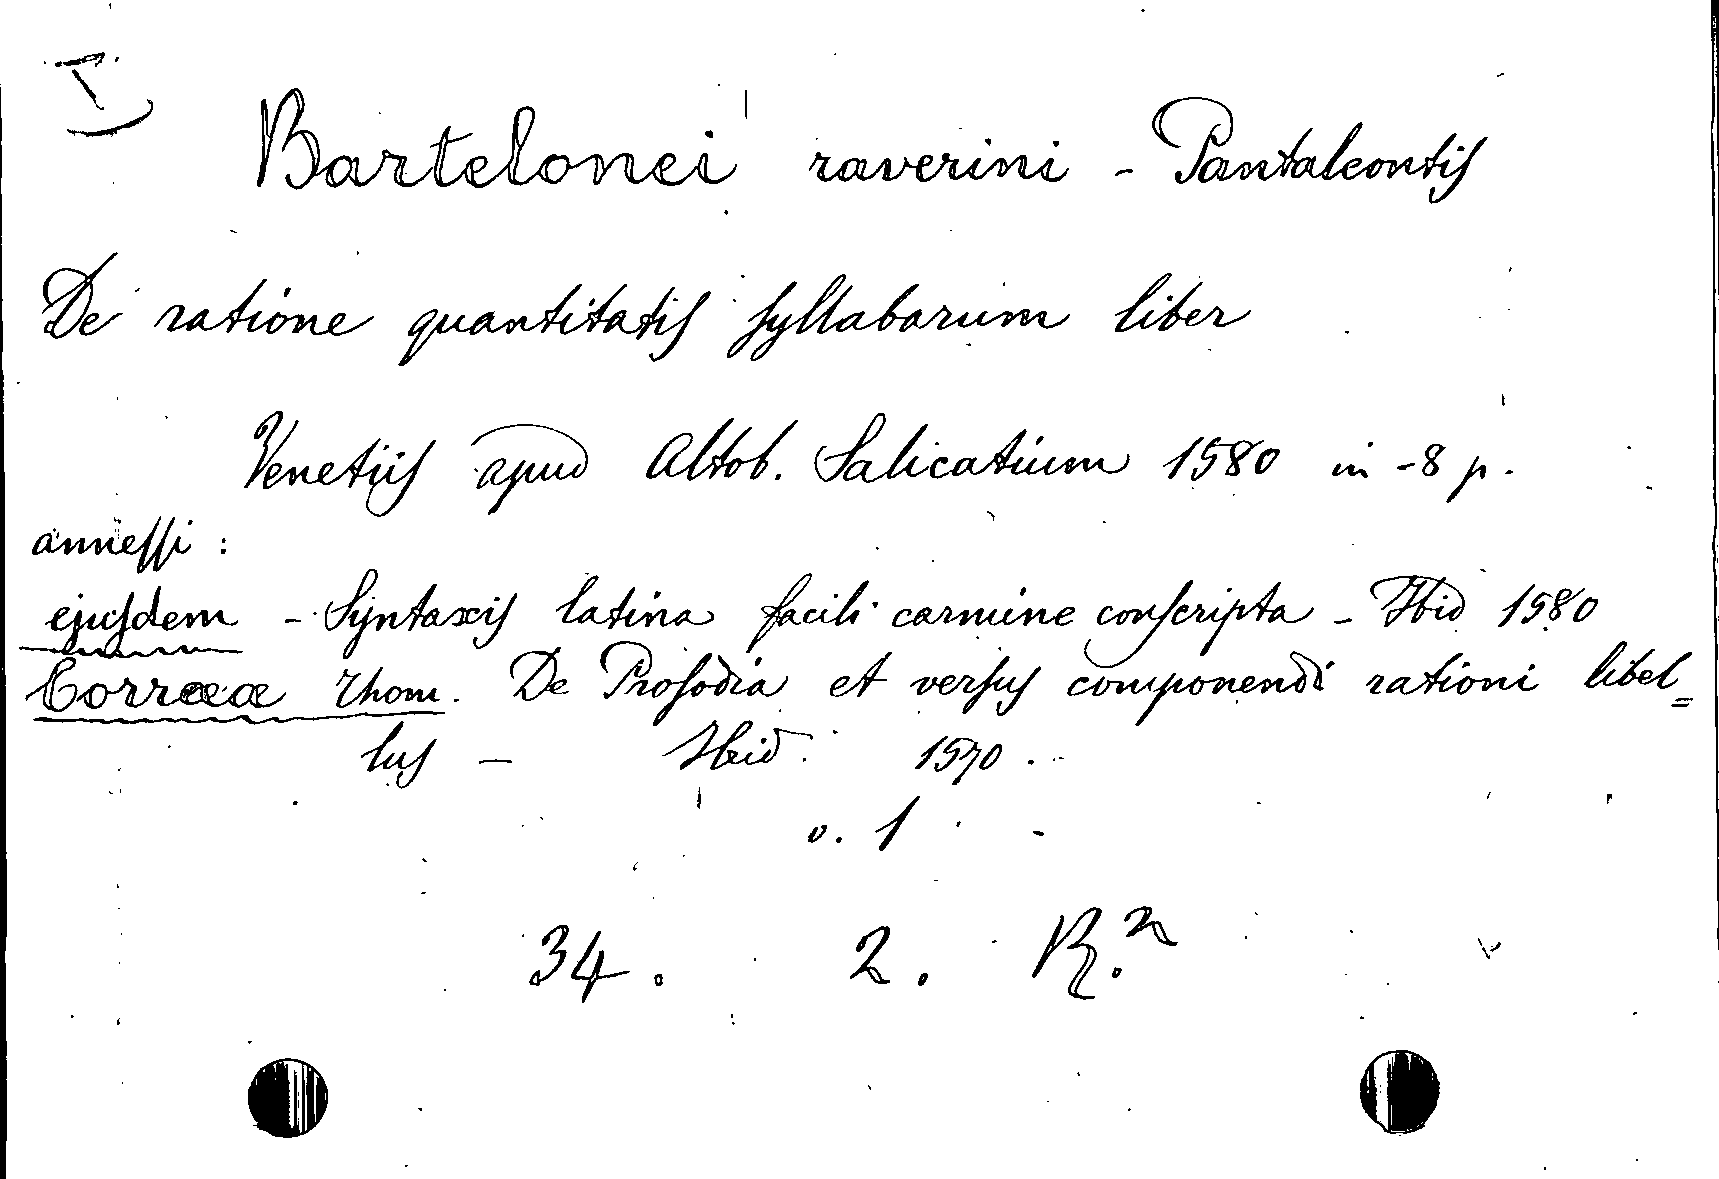 I
Bartelonei raverini - Pantaleontis
De ratione quantitatis syllabarum liber
Venetiis apud Altob. Salicatium 1580 in -8 p.
annessi :
ejusdem - Syntaxis latina facili carmine conscripta - Ibid 1580
Corraea Thom. De Prosodia et versus componendi rationi libel=
lus - Ibid. 1570.
v. 1
34. 2. R.²